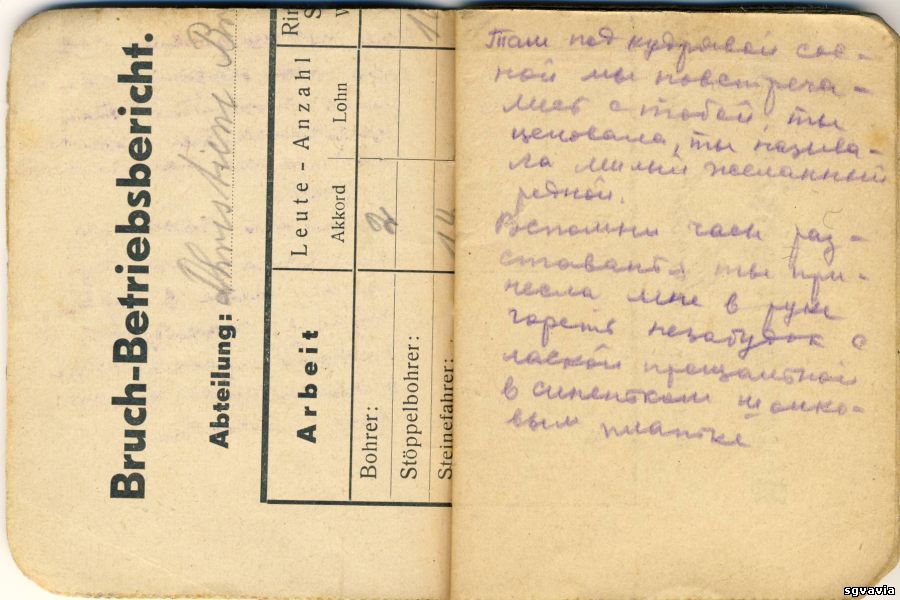 Bruch-Betriebsbericht.
Abteilung: Christiene Br
Arbeit
Leute - Anzahl
Akkord
Lohn
Rin
S
w
Bohrer: 2
Stöppelbohrer:
Steinefahrer: 14
Там под кудрявой сос-
ной мы повстреча-
лись с тобой, ты
целовала, ты называ-
ла милый желанный
родной.
Вспомни часы раз-
ставанья ты при-
несла мне в руки
горсть незабудок с
лаской прощальной
в синеньком шолко-
вым платке
sgvavia